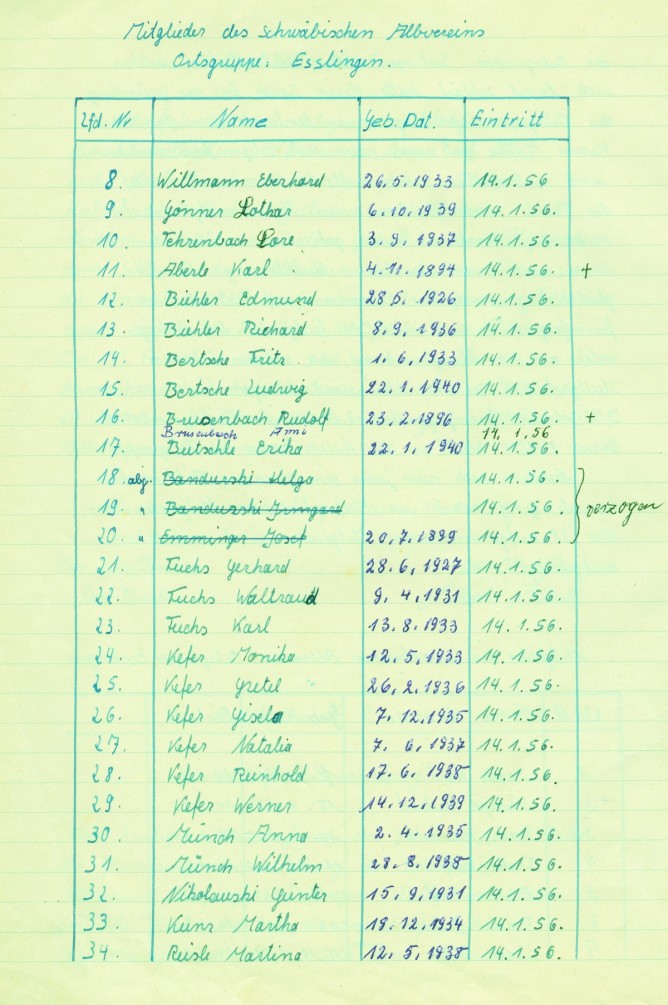 Mitglieder des Schwäbischen Albvereins
Ortsgruppe: Esslingen.
Lfd. Nr Name Geb. Dat. Eintritt
8. Willmann Eberhard 26.5.1933 14.1.56
9. Gönner Lothar 6.10.1939 14.1.56.
10. Fehrenbach Lore 3.9.1937 14.1.56.
11. Aberle Karl 4.11.1894 14.1.56. +
12. Bühler Edmund 28.5.1926 14.1.56.
13. Bühler Richard 8.9.1936 14.1.56.
14. Bertsche Fritz 1.6.1933 14.1.56.
15. Bertsche Ludwig 22.1.1940 14.1.56.
16. Brusenbach Rudolf 23.2.1896 14.1.56. +
Brusenbach Anni 14.1.56
17. Butschle Erika 22.1.1940 14.1.56.
18. abg. Bandurski Helga 14.1.56.
19. " Bandurski Irmgard 14.1.56. verzogen
20. " Emminger Josef 20.7.1899 14.1.56.
21. Fuchs Gerhard 28.6.1927 14.1.56.
22. Fuchs Waltraud 9.4.1931 14.1.56.
23. Fuchs Karl 13.8.1933 14.1.56.
24. Kefer Monika 12.5.1933 14.1.56.
25. Kefer Gretel 26.2.1936 14.1.56.
26. Kefer Gisela 7.12.1935 14.1.56.
27. Kefer Natalia 7.6.1937 14.1.56.
28. Kefer Reinhold 17.6.1938 14.1.56.
29. Kefer Werner 14.12.1939 14.1.56.
30. Münch Anna 2.4.1935 14.1.56.
31. Münch Wilhelm 28.8.1938 14.1.56.
32. Nikolauski Günter 15.9.1931 14.1.56.
33. Kunz Martha 19.12.1934 14.1.56.
34. Reisle Martina 12.5.1938 14.1.56.